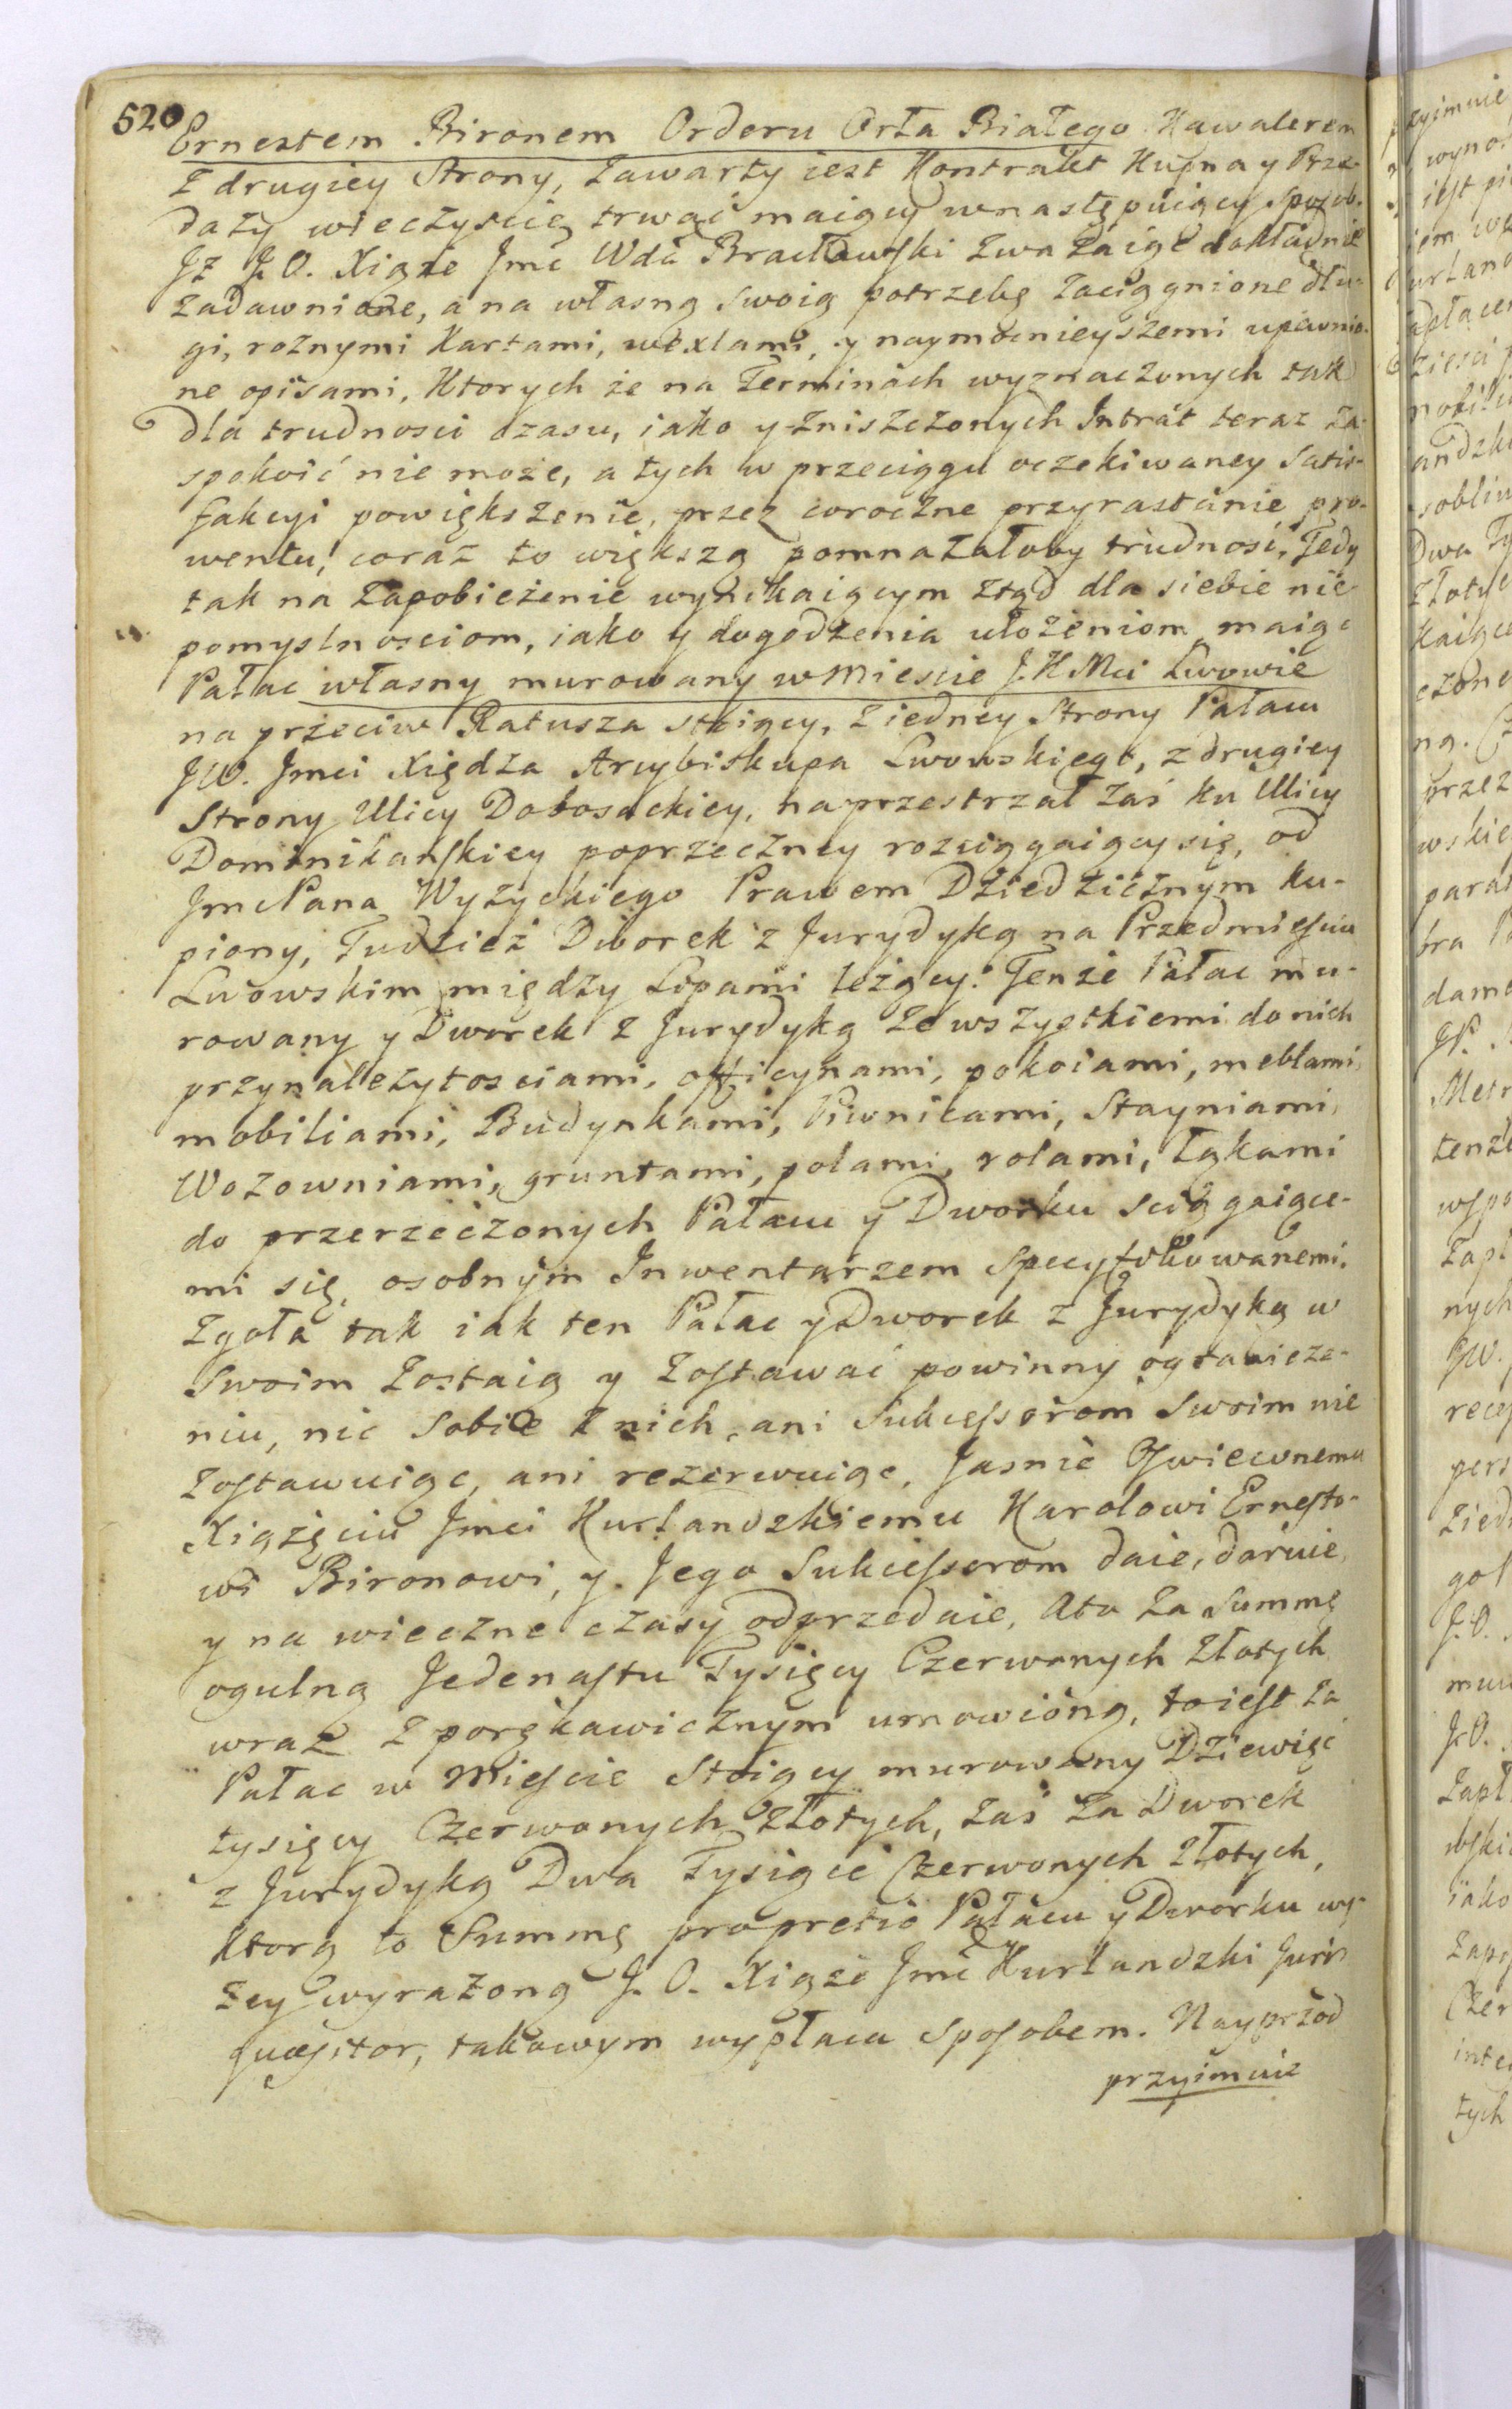 520
Ernestem Bironem Orderu Orła Białego Kawalerem
z drugiey Strony, zawarty iest Kontrakt Kupna y Prze-
daży wieczyscie trwać maiący wnastępuiący sposob.
Jż J. O. Xiąże Jmć Wda Bracławski zważaiąc dokładnie
zadawnione, a na własną swoią potrzebę zaciągnione dłu-
gi, roznymi Kartami, wexlami, y naymocnieyszemi upewnio-
ne opisami, Ktorych że na Terminach wyznaczonych tak
dla trudnosci czasu, iako y zniszczonych Intrat teraz za-
spokoić nie może, a tych w przeciągu oczekiwaney Satis-
fakcyi powiększenie, przez coroczne przyrastanie pro-
wentu, coraz to większą pomnażałoby trudność, Tedy
tak na zapobieżenie wynikaiącym ztąd dla siebie nie
pomyslnosciom, iako y dogodzenia ułożeniom maiąc
Pałac własny murowany w Miescie J. K Mci Lwowie
na przeciw Ratusza stoiący, z iedney Strony Pałacu
JW. Jmci Xiędza Arcybiskupa Lwowskiego, z drugiey
Strony Ulicy Dobosackiey, na przestrzał zaś ku Ulicy
Dominikanskiey poprzeczney rozciągaiący się, od
Jmc Pana Wyżyckiego Prawem Dziedzicznym ku-
piony, Tudzież Dworek z Jurydyką na Przedmiesciu
Lwowskim między Lipami leżący. Tenże Pałac mu-
rowany y Dworek z Jurydyką ze wszystkiemi do nich
przynależytosciami, officynami, pokoiami, meblami,
mobiliami, Budynkami, Piwnicami, Stayniami,
Wozowniami, gruntami, polami, rolami, łąkami
do przerzeczonych Pałacu y Dworku sciągaiące-
mi się, osobnym Inwentarzem specyfikowanemi.
Zgoła tak iak ten Pałac y Dworek z Jurydyką w
Swoim zostaią y zostawać powinny ogranicze-
niu, nic Sobie z nich, ani Sukcessorom Swoim nie
zostawuiąc, ani rezerwuiąc, Jasnie Oswieconemu
Xiążęciu Jmci Kurlandzkiemu Karolowi Ernesto-
wi Bironowi, y Jego Sukcessorom daie, daruie,
y na wieczne czasy odprzedaie, A to za Summę
ogulną Jedenastu Tysięcy Czerwonych Złotych
wraz z porękawicznym umowioną, to iest za
Pałac w Miescie Stoiący murowany Dziewięć
tysięcy Czerwonych Złotych, zaś za Dworek
z Jurydyką Dwa Tysiące Czerwonych Złotych,
Ktorą to Summę pro pretio Pałacu y Dworku wy-
żey wyrażoną J. O. Xiąże Jmć Kurlandzki Juris
quæsitor, takowym wypłaca sposobem. Nayprzod
przyimuie